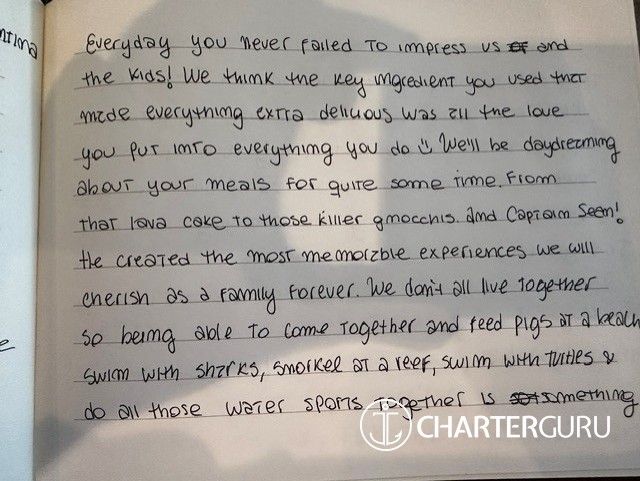 ntima
Everyday you never failed to impress us and
the kids! We think the key ingredient you used that
made everything extra delicious was all the love
you put into everything you do We'll be daydreaming
about your meals for quite some time. From
that lava cake to those killer gnocchis. and Captain Seem!
He created the most memorable experiences we will
cherish as a family forever. We don't all live together
so being able to come together and feed pigs at a beach
swim with sharks, snorkel at a reef, swim with turtles &
do all those water sports together is something
CHARTERGURU